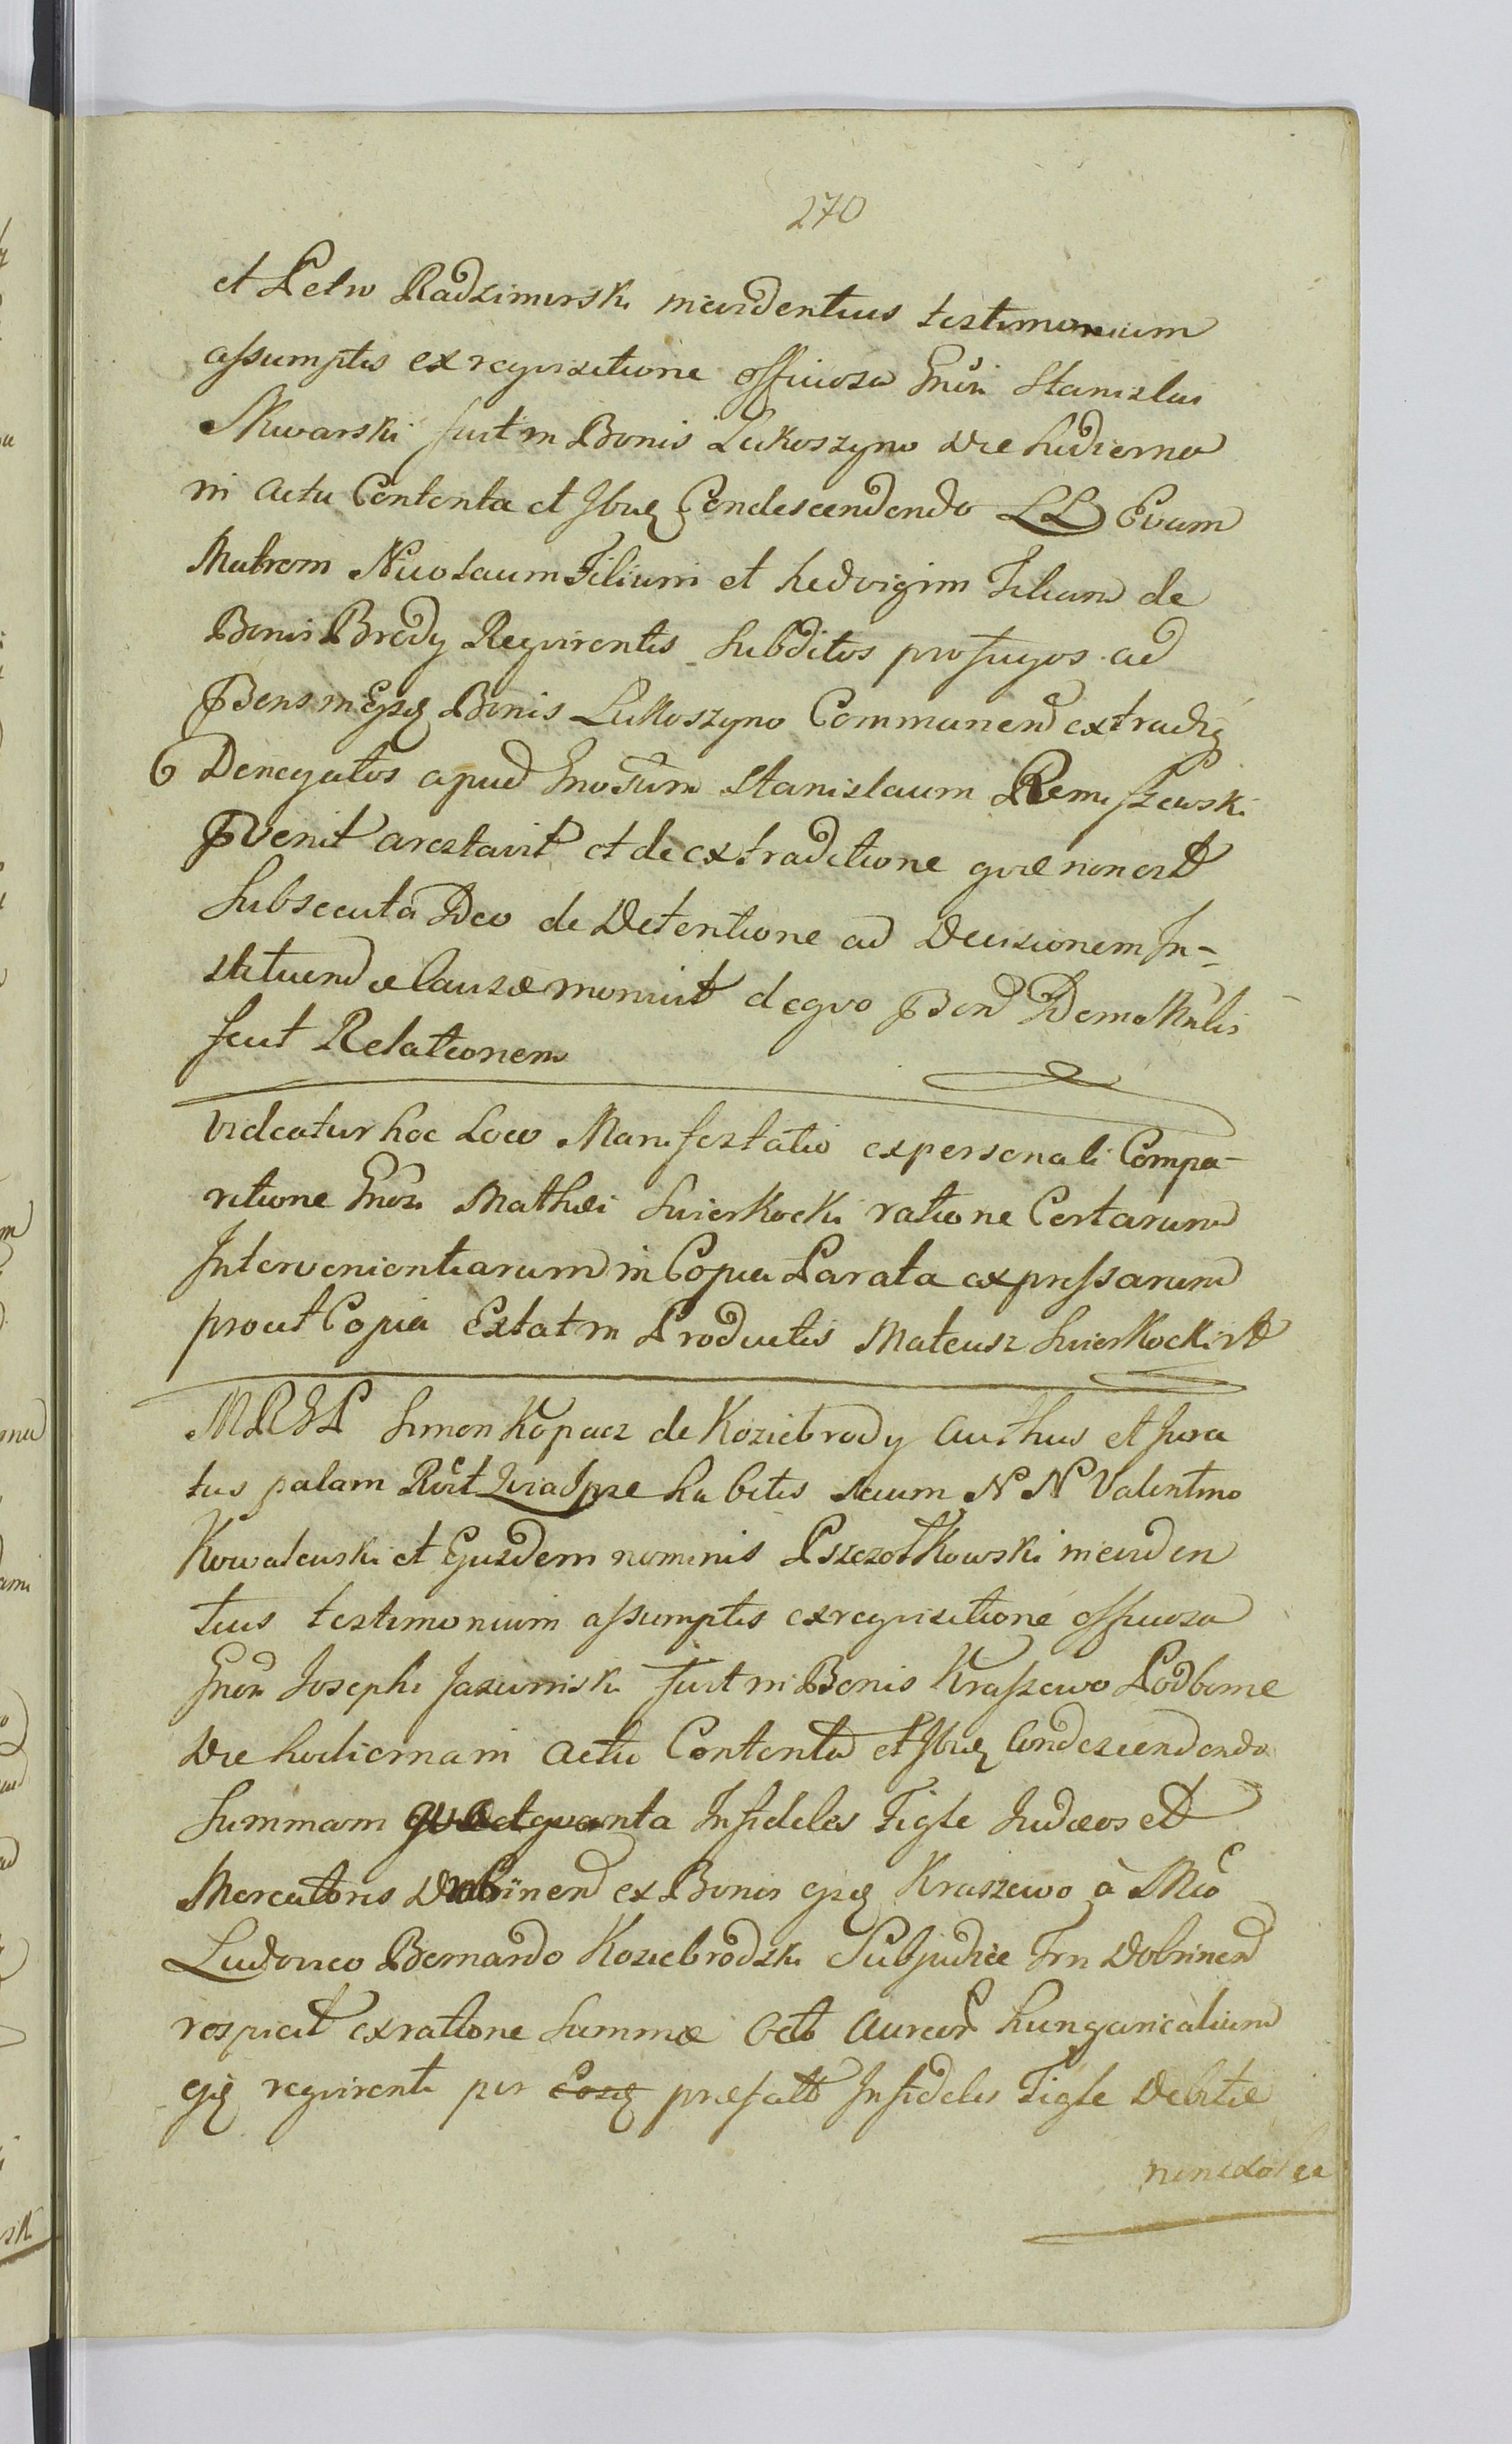 270
et Petro Radzimirski in evidentius testimonium
assumptis ex requisitione officiosa Gnosi Stanislai
Skwarski fuit in Bonis Lukoszyno die hodierna
in actu Contenta et Ibiq Condescendendo LL Evam
Matrem Nicolaum Filium et hedvigim Filiam de
Bonis Brody Requirentis Subditos profugos ad
Psens in Ejsq Bonis Lukoszyno Commanend extradi
Denegatos apud Gnosum Stanislaum Rem
Pvenit arestavit et de extraditione quæ non est
Subsecuta Deo de Detentione ad Decisionem In-
stituendæ Causæ monuit de quo Psens
fecit Relationem
Videatur hoc Loco Manifestatio ex personali Compa-
ritione Gnosi Mathæi Swierkocki ratione Certarum
Intervenientiarum in Copia Parata expressarum
prout Copia Extat in Productis Mateusz Swierkocki
MRGL Simon Kopacz de Koziebrody authus et Jura
tus palam Rcit habitis secum N N Valentino
Kowalewski et Ejusdem nominis Pszczolkowski in eviden
tius testimonium assumptis ex requisitione officiosa
Gnosi Josephi Jasinniski fuit in Bonis Kraszewo Podborne
die hodierna in actu Contenta et Ibiq Condescendendo
Summam quæ et quanta Infideles Figle Judæos et
Mercatores Dobrinen ex Bonis ejsq Kraszewo à Mco
Ludovico Bernardo Koziebrodzki Subjudice Trn Dobrinen
respicit ex ratione Summæ octo aureor hungaricalium
ejq requirenti per Eosq præfato Infideles Figle Debitæ